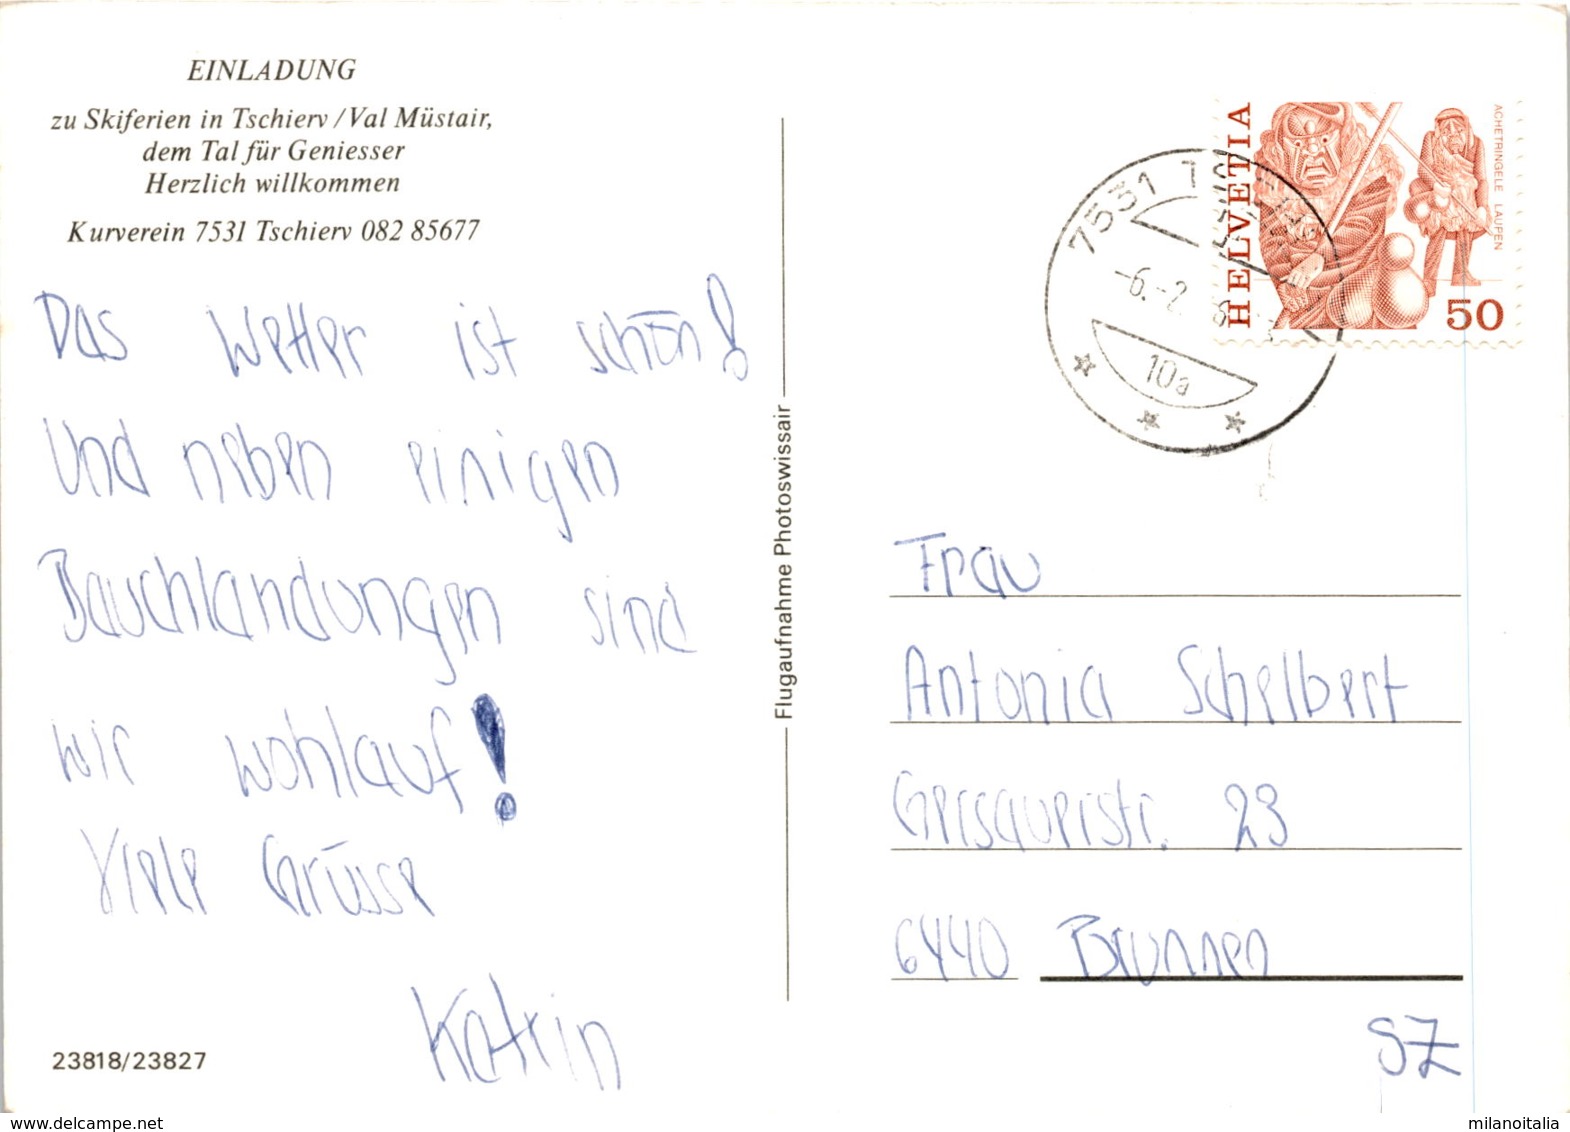 EINLADUNG
zu Skiferien in Tschierv / Val Müstair,
dem Tal für Geniesser
Herzlich willkommen
Kurverein 7531 Tschierv 082 85677
Das Wetter ist schön!
Und neben einigen
Bauchlandungen sind
wir wohlauf!
Viele Grüsse
Katrin
23818/23827
Flugaufnahme Photoswissair
HELVETIA
ACHETRINGELE LAUPEN
50
7531
-6.-2.
10a
Frau
Antonia Schelbert
Gersauerstr. 23
6440 Brunnen
SZ
www.delcampe.net
milanoitalia